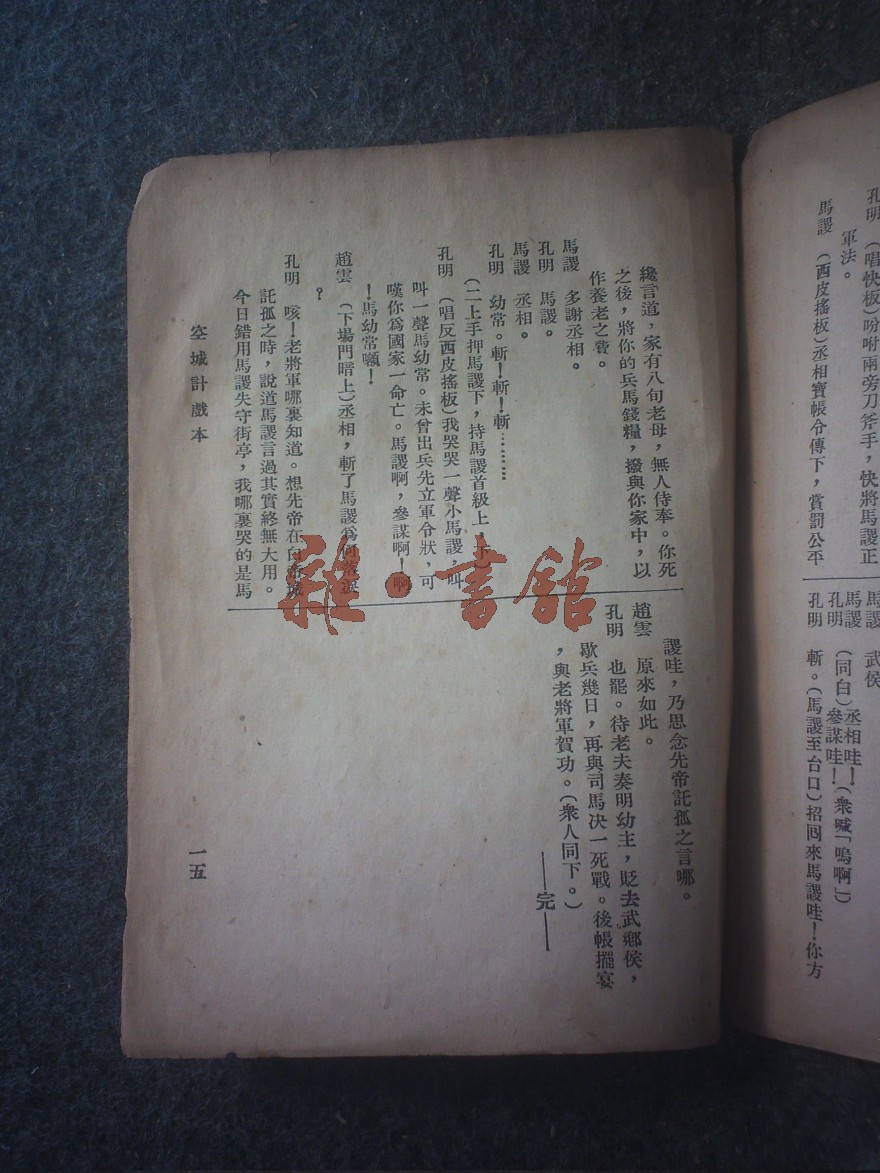 孔明　（唱快板）吩咐兩旁刀斧手，快將馬謖正
軍法。
馬謖　（西皮搖板）丞相寶帳令傳下，賞罰公平
馬謖　武侯
馬謖　（同白）丞相哇！（衆喊「嗚啊」）
孔明　參謀哇！
孔明　斬。（馬謖至台口）招囘來馬謖哇！你方
纔言道，家有八旬老母，無人侍奉。你死
之後，將你的兵馬錢糧，撥與你家中，以
作養老之費。
馬謖　多謝丞相。
孔明　馬謖。
馬謖　丞相。
孔明　幼常。斬！斬！斬………
（二上手押馬謖下，持馬謖首級上，下）
孔明　（唱反西皮搖板）我哭哭一聲小馬謖，叫
叫一聲馬幼常。未曾出兵先立軍令狀，可
嘆你爲國家一命亡。馬謖啊，參謀啊！啊
！馬幼常嚈！
趙雲　（下場門暗上）丞相，斬了馬謖爲何落淚
？
孔明　咳！老將軍哪裏知道。想先帝在白帝城
託孤之時，說道馬謖言過其實終無大用。
今日錯用馬謖失守街亭，我哪裏哭的是馬
謖哇，乃思念先帝託孤之言哪。
趙雲　原來如此。
孔明　也罷。待老夫奏明幼主，貶去武鄉侯，
歇兵幾日，再與司馬决一死戰。後帳擺宴
，與老將軍賀功。（衆人同下。）
——完——
空城計戲本
一五
雜·書館